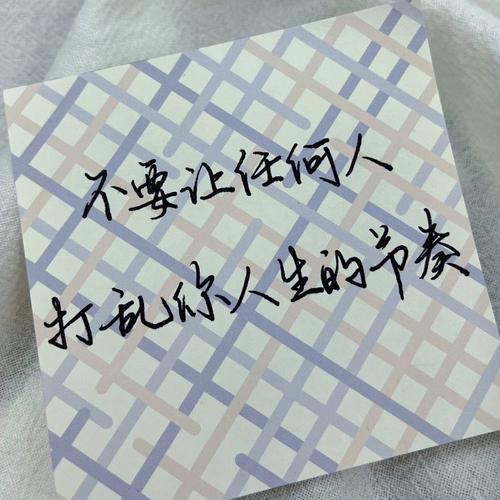 不要让任何人
打乱你人生的节奏